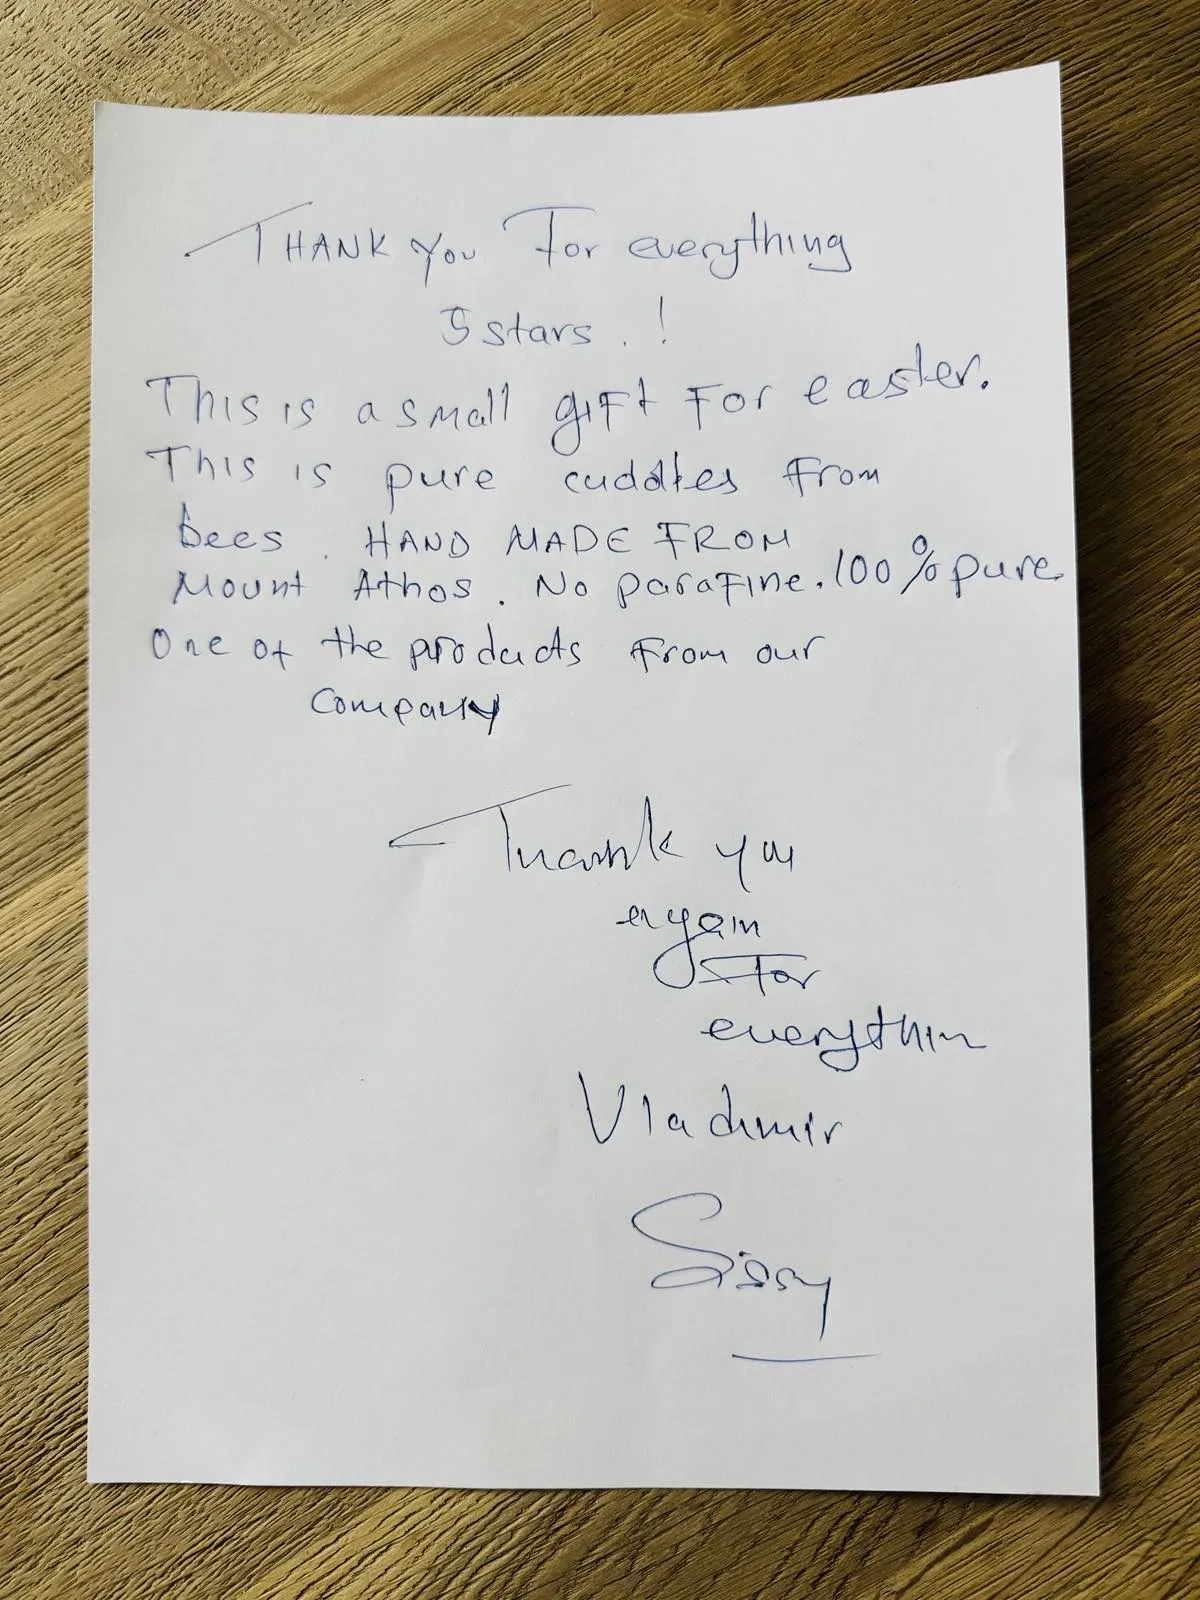 THANK You For everything
5 stars . !
This is a small gift For easter.
This is pure cuddles from
bees . HAND MADE FROM
Mount Athos . No parafine . 100 % pure.
One of the products from our
company
Thank you
again
for
everythin
Vladimir
Sissy